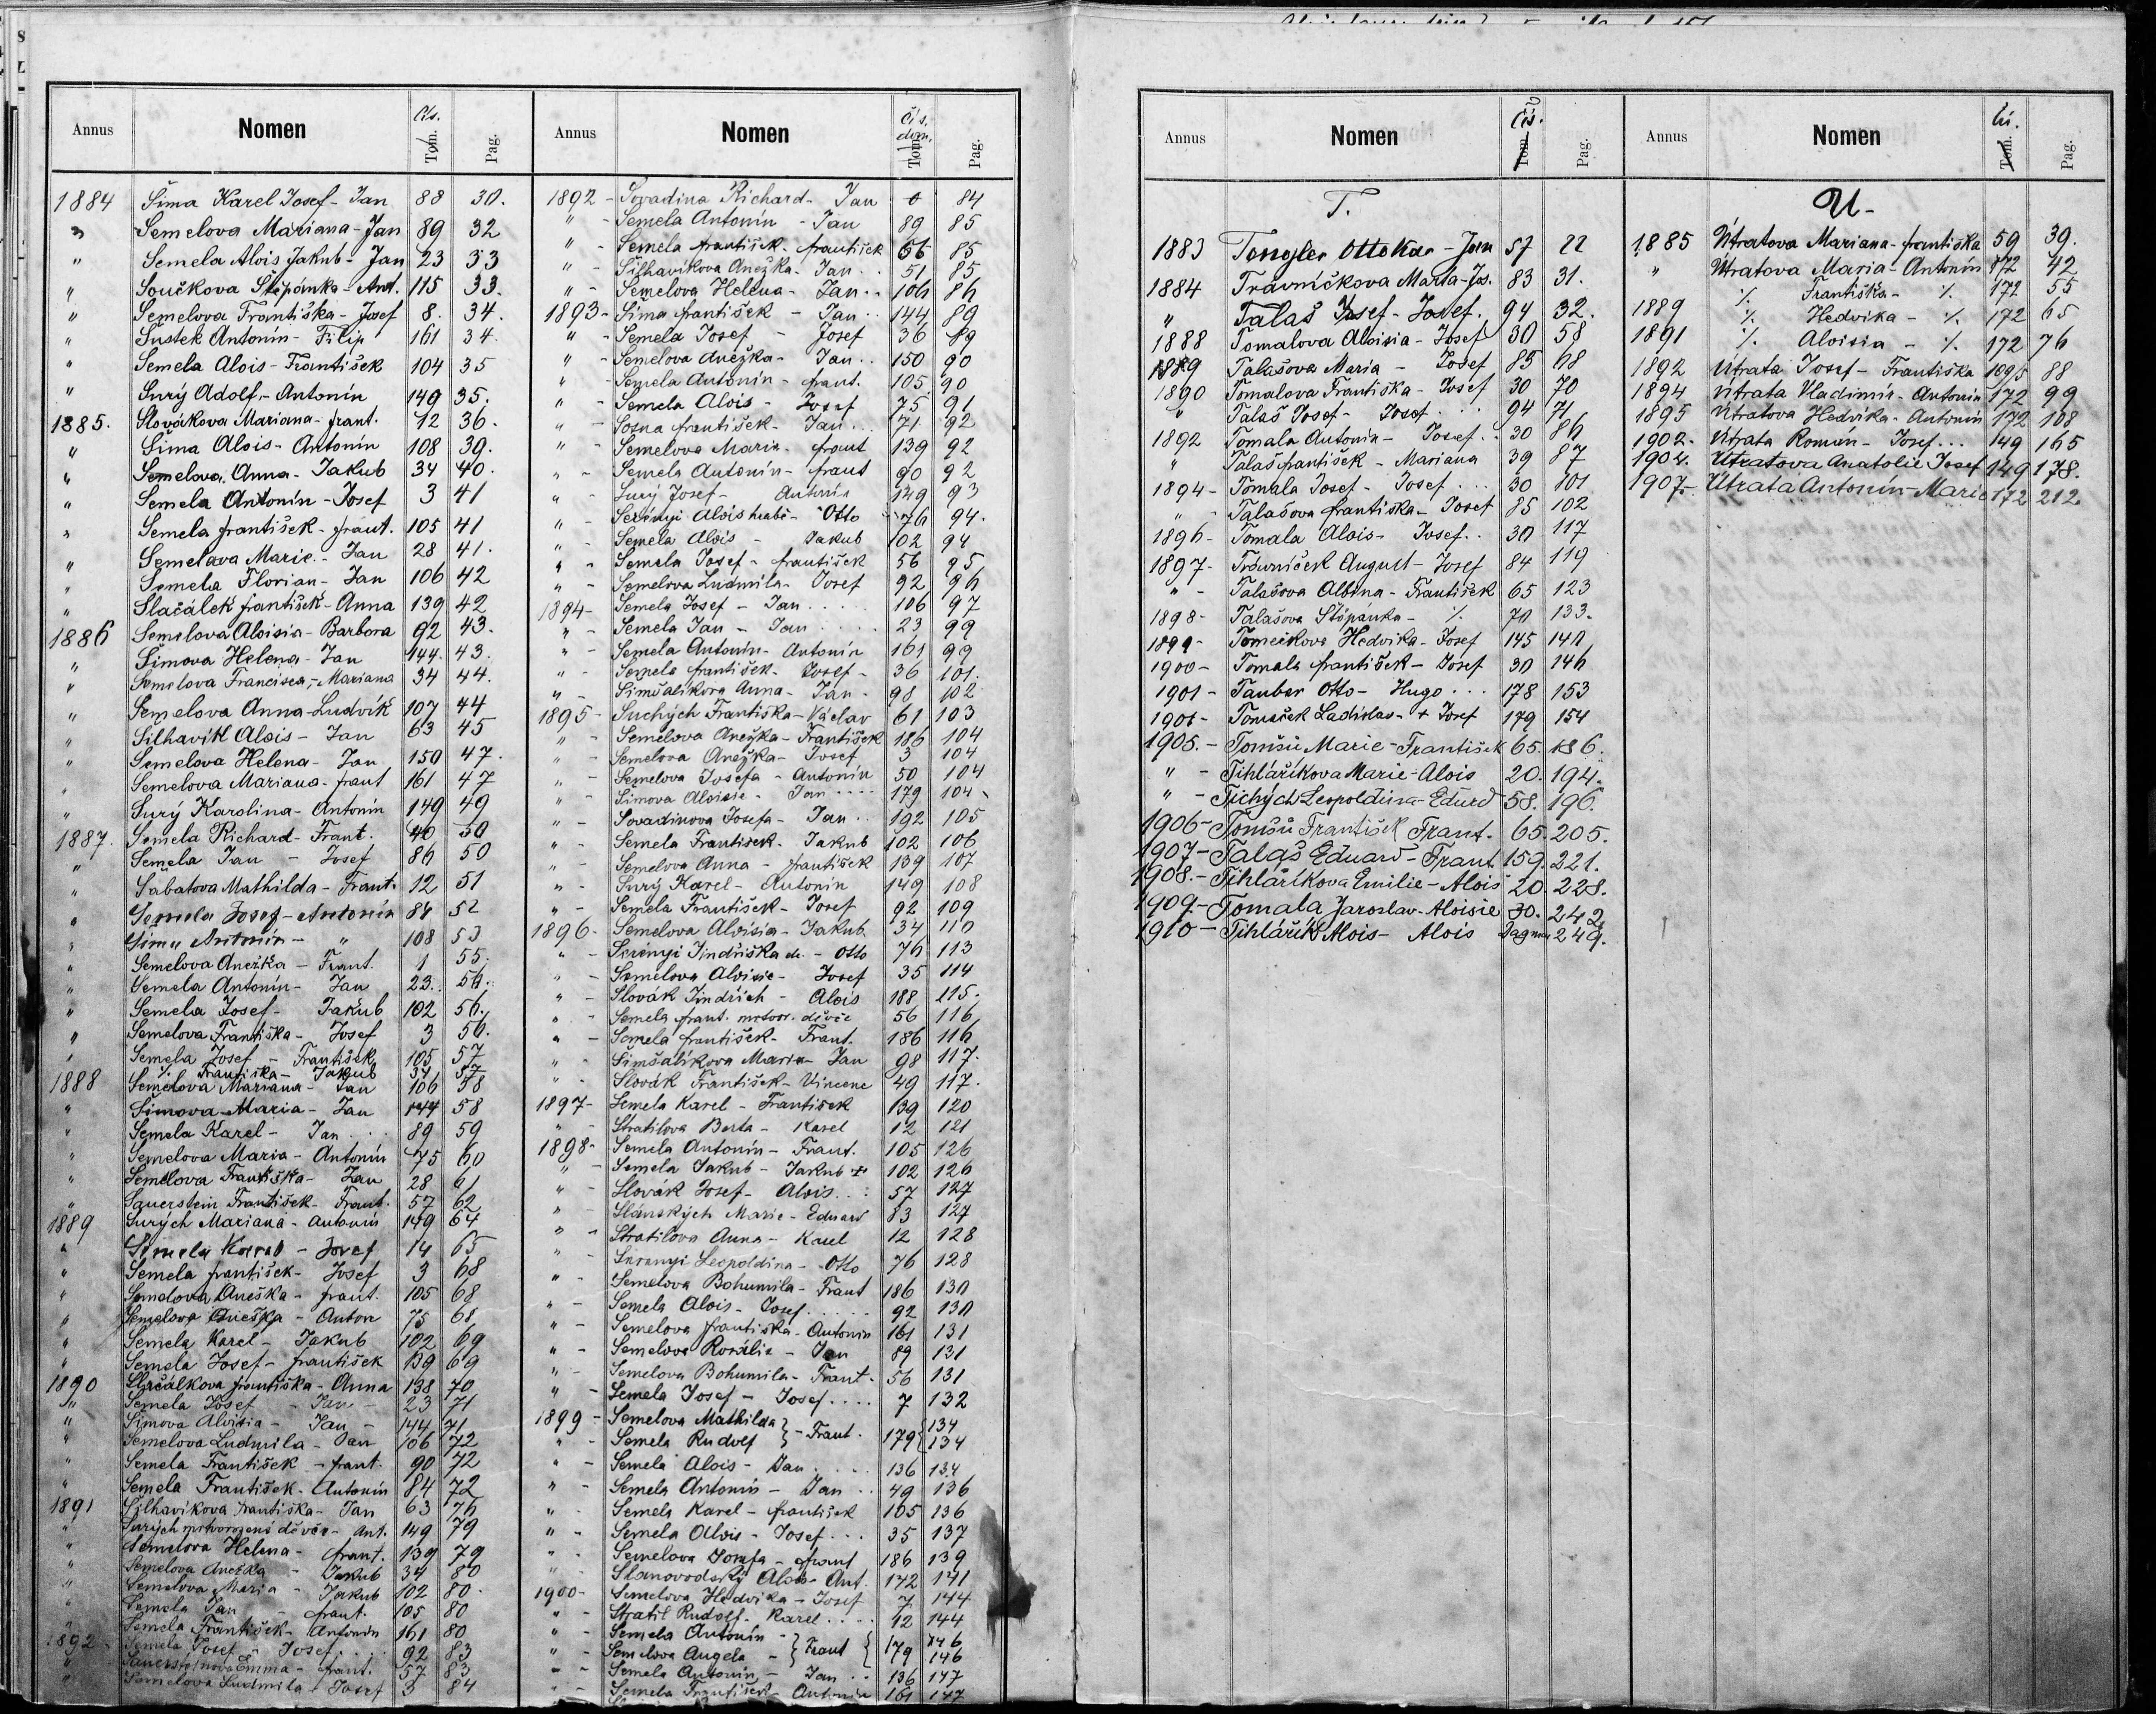 Annus Nomen Čís. Tom. Pag.
1884 Šima Karel Josef - Jan 88 30.
" Semelova Mariana - Jan 89 32
" Semela Alois Jakub - Jan 23 33
" Součkova Štěpánka - Ant. 115 33.
" Semelova Františka - Josef 8. 34.
" Šustek Antonín - Filip 161 34.
" Semela Alois - František 104 35
" Surý Adolf - Antonín 149 35.
1885. Slovákova Mariana - frant. 12 36.
" Šima Alois - Antonín 108 39.
" Semelova Anna - Jakub 34 40.
" Semela Antonín - Josef 3 41
" Semela františek - frant. 105 41
" Semelova Marie - Jan 28 41.
" Semela Florian - Jan 106 42
" Slačálek františek - Anna 139 42
1886 Semelova Aloisia - Barbora 92 43.
" Šimova Helena - Jan 144. 43.
" Semelova Francisca - Mariana 34 44.
" Semelova Anna - Ludvík 107 44
" Šilhavík Alois - Jan 63 45
" Semelova Helena - Jan 150 47.
" Semelova Mariana - frant 161 47
" Surý Karolina - Antonín 149 49
1887. Semela Richard - Frant. 40 50
" Semela Jan - Josef 86 50
" Šabatova Mathilda - Frant. 12 51
" Semela Josef - Antonín 84 52
" Šima Antonín - " 108 53
" Semelova Anežka - Frant. 1 55.
" Semela Antonín - Jan 23. 56.
" Semela Josef - Jakub 102 56.
" Semelova Františka - Josef 3 56.
" Semela Josef - František 105 57
" Františka - Jakub 34 57
1888 Semelova Mariana - Jan 106 58
" Šimova Maria - Jan 144 58
" Semela Karel - Jan 89 59
" Semelova Maria - Antonín 75 60
" Semelova Františka - Jan 28 61
" Sauerstein František - Frant. 57 62
1889 Surých Mariana - Antonín 149 64
" Semela Karel - Josef 14 65
" Semela františek - Josef 3 68
" Semelova Aneška - frant. 105 68
" Semelova Aneška - Anton 75 68
" Semela Karel - Jakub 102 69
" Semela Josef - františek 139 69
1890 Slačálkova františka - Anna 138 70
" Semela Josef - Jan - 23 71
" Šimova Aloisia - Jan - 144 71
" Semelova Ludmila - Jan 106 72
" Semela František - frant. 90 72
" Semela František - Antonín 84 72
1891 Šilhavíkova františka - Jan 63 76
" Surých mrtvorozené děvče - Ant. 149 79
" Semelova Helena - frant. 139 79
" Semelova Anežka - Jakub 34 80
" Semelova Maria - Jakub 102 80.
" Semela Jan - frant. 105 80
" Semela František - Antonín 161 80
1892 - Semela Josef - Josef 92 83
" Sauersteinova Emma - frant. 57 83
" Semelova Ludmila - Josef 3 84
Annus Nomen Čís. dom. Tom. Pag.
1892 - Sovadina Richard - Jan 0 84
" - Semela Antonín - Jan 89 85
" - Semela františek - františek 56 85
" - Šilhavíkova Anežka - Jan 51 85
" - Semelova Helena - Jan 106 86
1893 - Šima františek - Jan 144 89
" - Semela Josef - Josef 36 89
" - Semelova Anežka - Jan 150 90
" - Semela Antonín - frant. 105 90
" - Semela Alois - Josef 75 91
" - Sosna františek - Jan 71 92
" - Semelova Maria - frant 139 92
" - Semela Antonín - frant 90 92
" - Surý Josef - Antonín 149 93
" - Serényi Alois hrabě - Otto 76 94.
" - Semela Alois - Jakub 102 94
" - Semela Josef - františek 56 95
" - Semelova Ludmila - Josef 92 96
1894 - Semela Josef - Jan 106 97
" - Semela Jan - Jan 23 99
" - Semela Antonín - Antonín 161 99
" - Semela františek - Josef - 36 101.
" - Šimšalíkova Anna - Jan - 98 102
1895 - Suchých Františka - Václav 61 103
" - Semelova Anežka - František 186 104
" - Semelova Anežka - Josef 3 104
" - Semelova Josefa - Antonín 50 104
" - Šimova Aloisie - Jan 179 104
" - Sovadinova Josefa - Jan 192 105
" - Semela František - Jakub 102 106
" - Semelova Anna - františek 139 107
" - Surý Karel - Antonín 149 108
" - Semela František - Josef 92 109
1896 - Semelova Aloisia - Jakub 34 110
" - Serényi Jindřiška - Otto 76 113
" - Semelova Aloisie - Josef 35 114
" - Slovák Jindřich - Alois 188 115.
" - Semela frant. mrtvor. děvče 56 116
" - Semela františek - Frant. 186 116
" - Šimšalíkova Maria - Jan 98 117.
" - Slovák František - Vincenc 49 117.
1897 - Semela Karel - František 139 120
" - Stratilova Berta - Karel 12 121
1898 - Semela Antonín - Frant. 105 126
" - Semela Jakub - Jakub 102 126
" - Slovák Josef - Alois 57 127
" - Slánských Marie - Eduard 83 127
" - Stratilova Anna - Karel 12 128
" - Serenyi Leopoldina - Otto 76 128
" - Semelova Bohumila - Frant 186 130
" - Semela Alois - Josef 92 130
" - Semelova františka - Antonín 161 131
" - Semelova Rosálie - Jan 89 131
" - Semelova Bohumila - Frant - 56 131
" - Semela Josef - Josef 7 132
1899 - Semelova Mathilda } - Frant. 179 { 134
" - Semela Rudolf 134
" - Semela Alois - Jan 136 134
" - Semela Antonín - Jan 49 136
" - Semela Karel - františek 105 136
" - Semela Alois - Josef 35 137
" - Semelova Josefa - frant 186 139
" - Slanovodský Alois - Ant. 142 141
1900 - Semelova Hedvika - Josef 7 144
" - Stratil Rudolf - Karel 12 144
" - Semela Antonín - } Frant { 179 146
" - Semelova Angela - 146
" - Semela Antonín - Jan 136 147
" - Semela František - Antonín 161 147
Annus Nomen Čís. Tom. Pag.
T.
1883 Tongler Ottokar - Jan 57 22
1884 Travníčkova Marta - Jos. 83 31.
" Talaš Josef - Josef. 94 32.
1888 Tomalova Aloisia - Josef 30 58
1889 Talašova Maria - Josef 85 68
1890 Tomalova Františka - Josef 30 70
" Talaš Josef - Josef 94 71
1892 Tomala Antonín - Josef 30 86
" Talaš františek - Mariana 39 87
1894 - Tomala Josef - Josef 30 101
" - Talašova františka - Josef 85 102
1896 - Tomala Alois - Josef 30 117
1897 - Trávníček August - Josef 84 119
" - Talašova Albina - František 65 123
1898 - Talašova Štěpánka - ./. 70 133.
1899 - Tomečkova Hedvika - Josef 145 140
1900 - Tomala františek - Josef 30 146
1901 - Tauber Otto - Hugo 178 153
1901 - Tomeček Ladislav - + Josef 179 154
1905. - Tomšů Marie - František 65. 186.
" - Tihlaříkova Marie - Alois 20. 194.
" - Tichých Leopoldina - Eduard 58. 196.
1906 - Tomšů František Frant. 65. 205.
1907 - Talaš Eduard - Frant. 159. 221.
1908. - Tihlaříkova Emilie - Alois 20. 228.
1909. - Tomala Jaroslav - Aloisie 30. 242.
1910 - Tihlařík Alois - Alois Dagmar 249.
Annus Nomen Čí. Tom. Pag.
U -
1885 Útratova Mariana - františka 59 39.
" Útratova Maria - Antonín 172 42
./. Františka - ./. 172 55
1889 ./. Hedvika - ./. 172 65
1891 ./. Aloisia - ./. 172 76
1892 Útrata Josef - Františka 88
1894 Útrata Vladimír - Antonín 172 99
1895 Útratova Hedvika - Antonín 172 108
1902. Útrata Roman - Josef 149 165
1904. Útratova Anatolie Josef 149 178.
1907. - Útrata Antonín - Marie 172 212